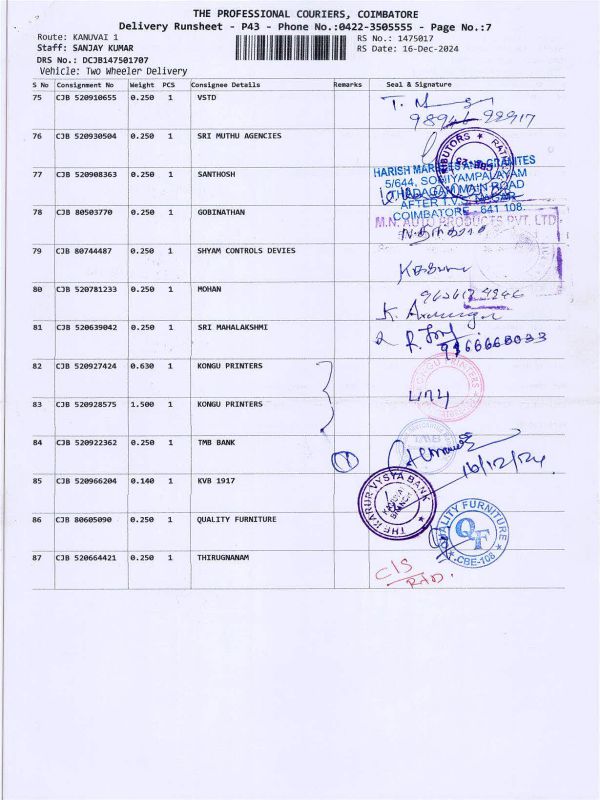 THE PROFESSIONAL COURIERS, COIMBATORE
Delivery Runsheet - P43 - Phone No.:0422-3505555 - Page No.:7
Route: KANUVAI 1
RS No.: 1475017
Staff: SANJAY KUMAR
RS Date: 16-Dec-2024
DRS No.: DCJB147501707
Vehicle: Two Wheeler Delivery
S No Consignment No Weight PCS Consignee Details Remarks Seal & Signature
75 CJB 520910655 0.250 1 VSTD
76 CJB 520930504 0.250 1 SRI MUTHU AGENCIES
77 CJB 520908363 0.250 1 SANTHOSH
HARISH MARBLES AND GRANITES
5/644, SOMIYAMPALAYAM
THADAGAM MAIN ROAD
AFTER T.V.S. NAGAR
COIMBATORE - 641 108.
78 CJB 80503770 0.250 1 GOBINATHAN
M.N. AUTO PRODUCTS PVT. LTD
79 CJB 80744487 0.250 1 SHYAM CONTROLS DEVIES
80 CJB 520781233 0.250 1 MOHAN
81 CJB 520639042 0.250 1 SRI MAHALAKSHMI
82 CJB 520927424 0.630 1 KONGU PRINTERS
KONGU PRINTERS
83 CJB 520928575 1.500 1 KONGU PRINTERS
84 CJB 520922362 0.250 1 TMB BANK
TMB
16/12/24
85 CJB 520966204 0.140 1 KVB 1917
THE KARUR VYSYA BANK
86 CJB 80605090 0.250 1 QUALITY FURNITURE
QUALITY FURNITURE
QF
CBE-108
87 CJB 520664421 0.250 1 THIRUGNANAM
C/S